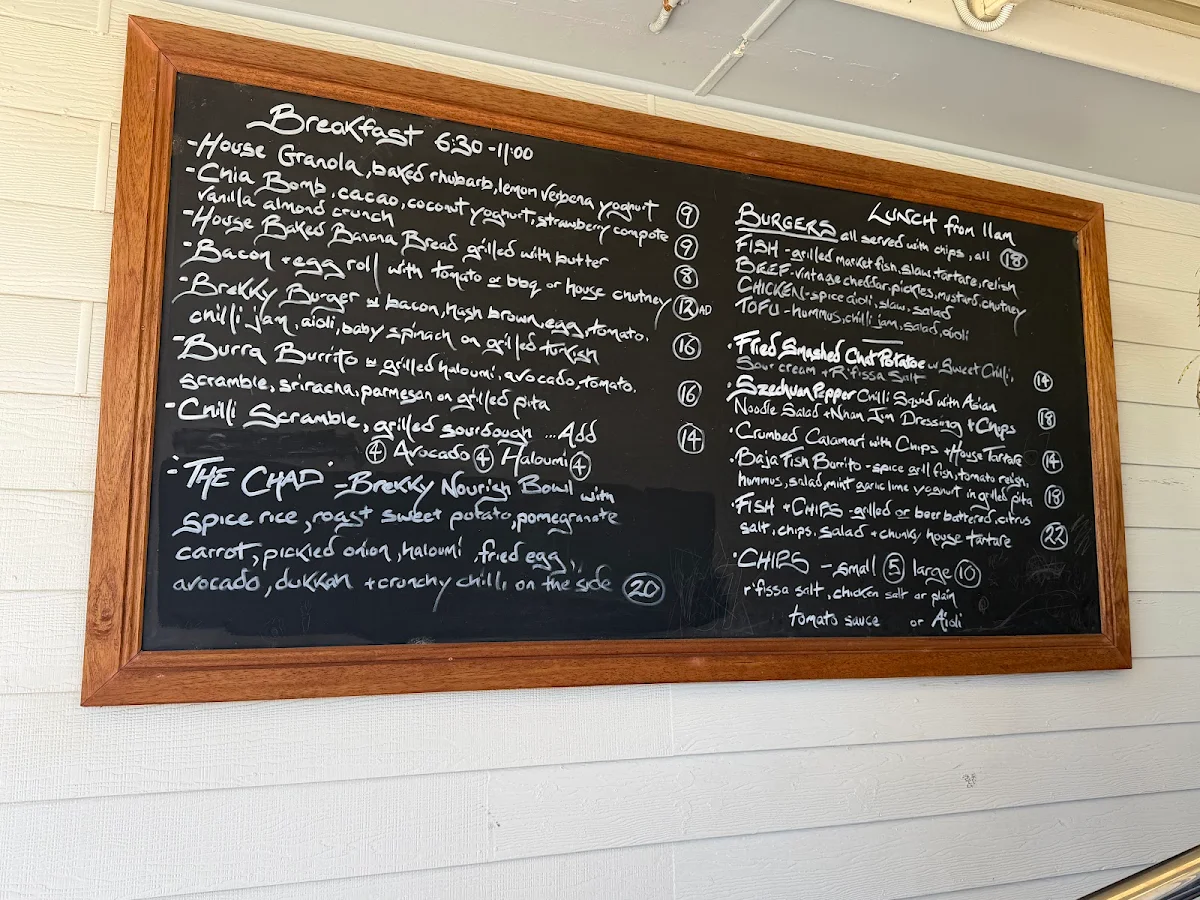 Breakfast 6:30 - 11:00
- House Granola, baked rhubarb, lemon verbena yoghurt 9
- Chia Bomb, cacao, coconut yoghurt, strawberry compote
vanilla almond crunch 9
- House Baked Banana Bread grilled with butter 8
- Bacon + egg roll with tomato or bbq or house chutney 12 AD
- Brekky Burger w bacon, hash brown, egg, tomato,
chilli jam, aioli, baby spinach on grilled turkish 16
- Burra Burrito w grilled haloumi, avocado, tomato,
scramble, sriracha, parmesan on grilled pita 16
- Chilli Scramble, grilled sourdough ... Add 14
4 Avocado 4 Haloumi 4
- "THE CHAD" - Brekky Nourish Bowl with
spice rice, roast sweet potato, pomegranate
carrot, pickled onion, haloumi, fried egg,
avocado, dukkah + crunchy chilli on the side 20
LUNCH from 11am
BURGERS all served with chips, all 18
FISH - grilled market fish, slaw, tartare, relish
BEEF - vintage cheddar, pickles, mustard, chutney
CHICKEN - spice aioli, slaw, salad
TOFU - hummus, chilli jam, salad, aioli
· Fried Smashed Chat Potatoe w Sweet Chilli,
Sour cream + R'fissa Salt 14
· Szechuan Pepper Chilli Squid with Asian
Noodle Salad + Nhan Jim Dressing + Chips 18
· Crumbed Calamari with Chips + House Tartare 14
· Baja Fish Burrito - spice grill fish, tomato relish,
hummus, salad, mint garlic lime yoghurt in grilled pita 18
· FISH + CHIPS - grilled or beer battered, citrus
salt, chips, salad + chunky house tartare 22
· CHIPS - small 5 large 10
r'fissa salt, chicken salt or plain
tomato sauce or Aioli